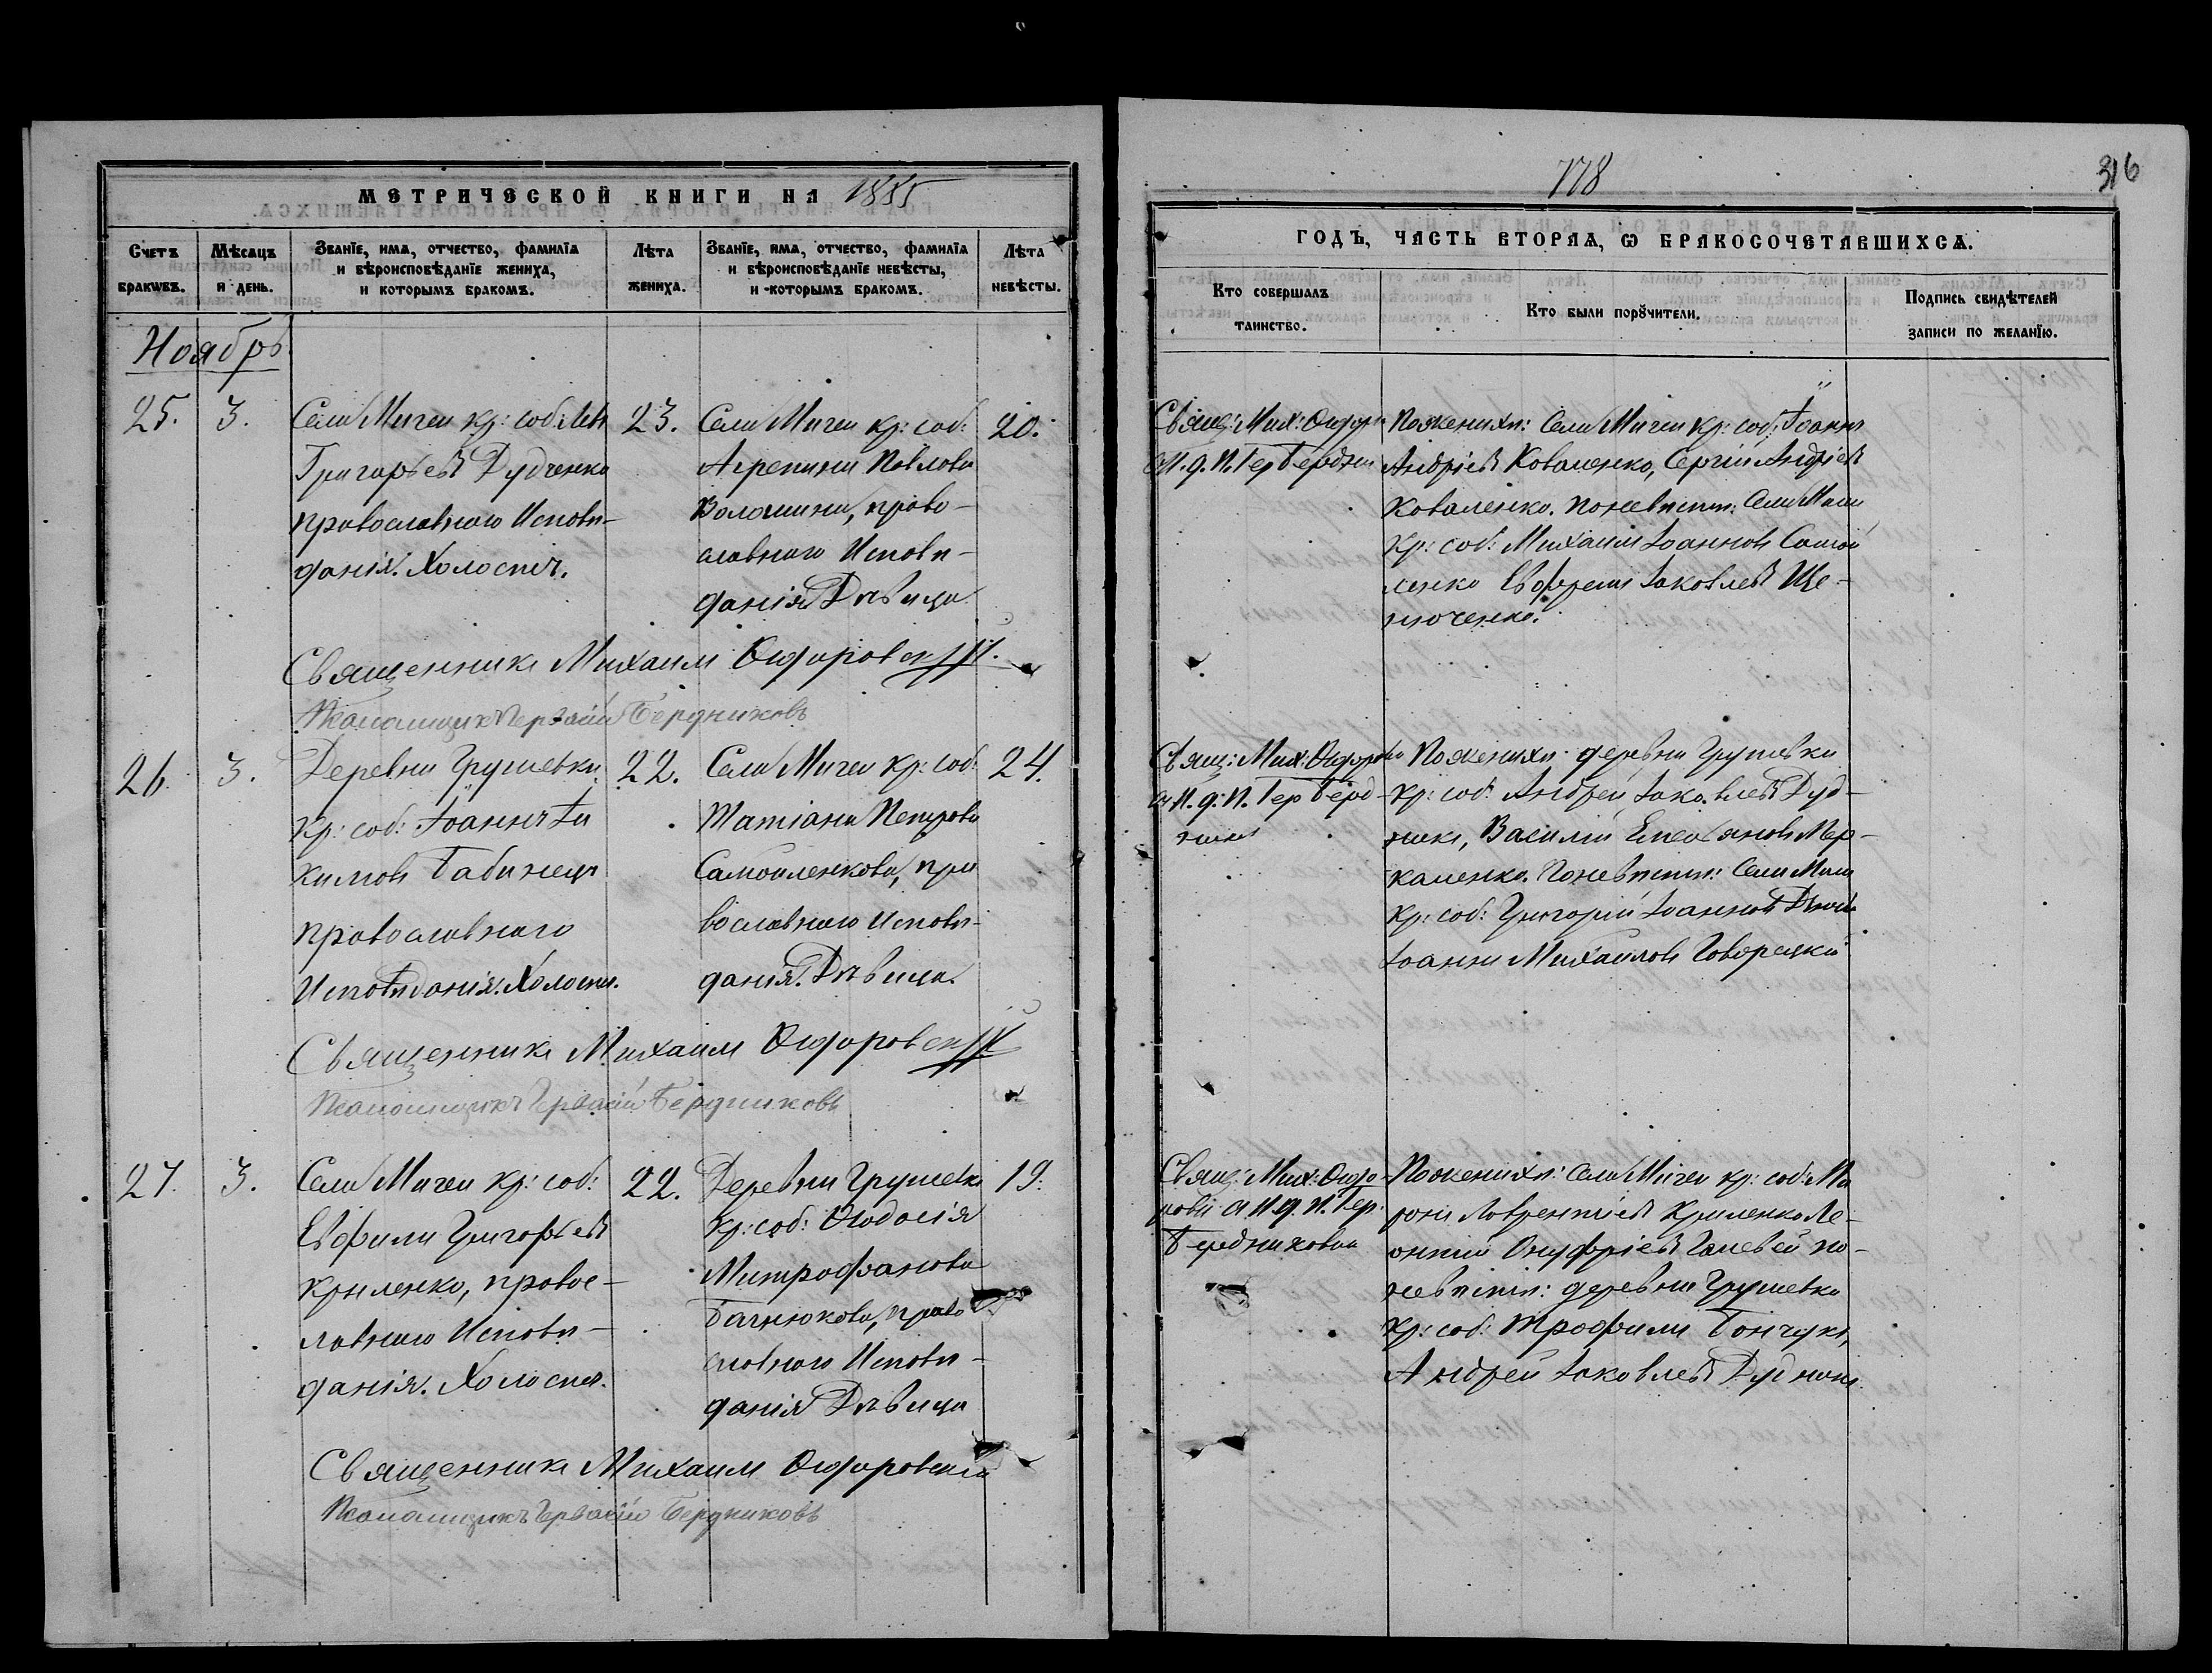 МЕТРИЧЕСКОЙ КНИГИ НА 1885
Счетъ браковъ.
Мѣсяцъ и день.
Званїе, имя, отчество, фамилїя
и вѣроисповѣданїе жениха,
и которымъ бракомъ.
Лѣта
жениха.
Званїе, имя, отчество, фамилїя
и вѣроисповѣданїе невѣсты,
и которымъ бракомъ.
Лѣта
невѣсты.
Ноябрь
25. 3.
Села Мигеи кр: соб: Левъ
Григорьевъ Дудченко
православнаго Исповѣ-
данія. Холостъ.
23.
Села Мигеи кр: соб:
Агрепина Павлова
Волошина, право-
славнаго Исповѣ-
данія Дѣвица
20.
Священникъ Михаилъ Ѳедоровскій.
Псаломщикъ Гервасій Бердниковъ
26. 3.
Деревни Грушевки
кр: соб: Іоаннъ Іа
кимовъ Бабинецъ
православнаго
Исповѣданія. Холостъ.
22.
Села Мигеи кр: соб:
Татіана Петрова
Самойленкова, пра
вославнаго Исповѣ-
данія. Дѣвица.
24.
Священникъ Михаилъ Ѳедоровскій
Псаломщикъ Гервасій Бердниковъ
27. 3.
Села Мигеи кр: соб:
Евфимъ Григорьевъ
Крыленко, правос-
лавнаго Исповѣ-
данія. Холостъ.
22.
Деревни Грушевки
кр: соб: Ѳеодосія
Митрофанова
право
славнаго Исповѣ-
данія Дѣвица
19.
Священникъ Михаилъ Ѳедоровскій
Псаломщикъ Гервасій Бердниковъ
778
316
ГОДЪ, ЧАСТЬ ВТОРАЯ, Ѡ БРАКОСОЧЕТАВШИХСЯ.
Кто совершалъ
таинство.
Кто были порꙋчители.
Подпись свидѣтелей
записи по желанїю.
Свящ: Мих: Ѳедоро
И. д. П. Гер Бердник
По женихѣ: Села Мигеи кр: соб: Іоаннъ
Андріевъ Коваленко, Сергій Андріевъ
Коваленко. по невѣстѣ: Села Мигеи
кр: соб: Михаилъ Іоанновъ Самой
ленко Евфремъ Іаковлевъ Ще-
Свящ: Мих: Ѳедоров
И. д. П. Гер Берд-
По женихѣ: деревни Грушевки
кр: соб: Андрей Іаковлевъ Дуд-
никъ, Василій Емельяновъ Мар-
каленко. По невѣстѣ: Села Мигеи
кр: соб: Григорій Іоанновъ
Іоаннъ Михаиловъ
Свящ: Мих: Ѳедо-
И. д. П. Гер.
Бердниковъ
По женихѣ: Села Мигеи кр: соб: Ми
ронъ Лаврентіевъ Крыленко Ле-
онтій Онуфріевъ по
невѣстѣ: деревни Грушевки
кр: соб: Трофимъ Бончукъ,
Андрей Іаковлевъ Дудникъ